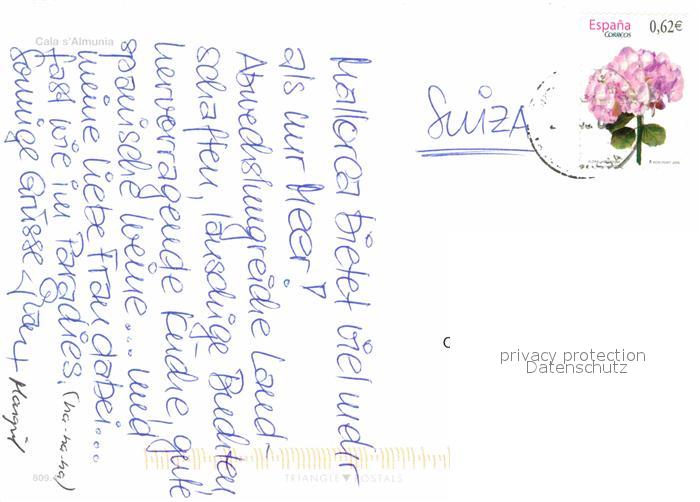 Mallorca bietet viel mehr
als nur Meer!
Abwechslungreiche Land-
schaften, lauschige Buchten
hervorragende Küche, gute
spanische Weine.... und
meine liebe Frau dabei....
fast wie im Paradies. (ha-ha-ha)
Sonnige Grüsse
+ Margrit
Cala s'Almunia
SUIZA
España
CORREOS
0,62€
privacy protection
Datenschutz
TRIANGLE POSTALS